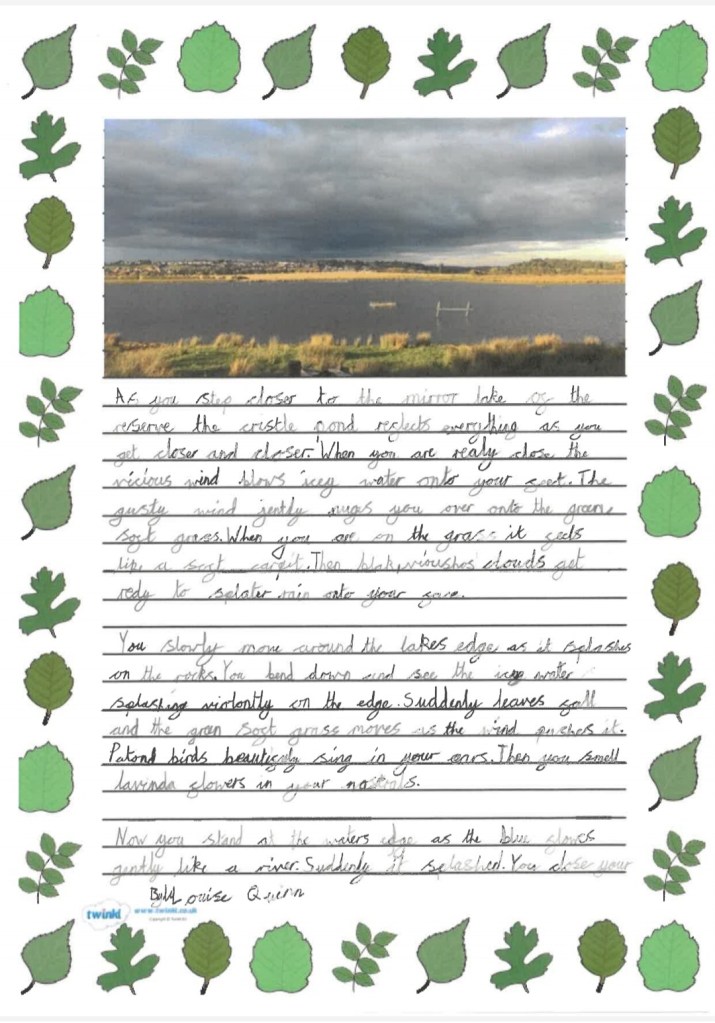 As you step closer to the mirror lake of the
reserve the cristle pond reflects everything as you
get closer and closer. When you are realy close the
vicious wind blows icey water onto your feet. The
gusty wind jently nuges you over onto the green
soft grass. When you are on the grass it feels
like a soft carpit. Then blak, vioushos clouds get
redy to splater rain onto your face.
You slowly move around the lakes edge as it splashes
on the rocks. You bend down and see the icey water
splashing violontly on the edge. Suddenly leaves fall
and the green soft grass moves as the wind pushes it.
Patond birds beautifully sing in your ears. Then you smell
lavinda flowers in your nostrals.
Now you stand at the waters edge as the blue flows
gently like a river. Suddenly it splashed. You close your
By Louise Quinn
twinkl www.twinkl.co.uk